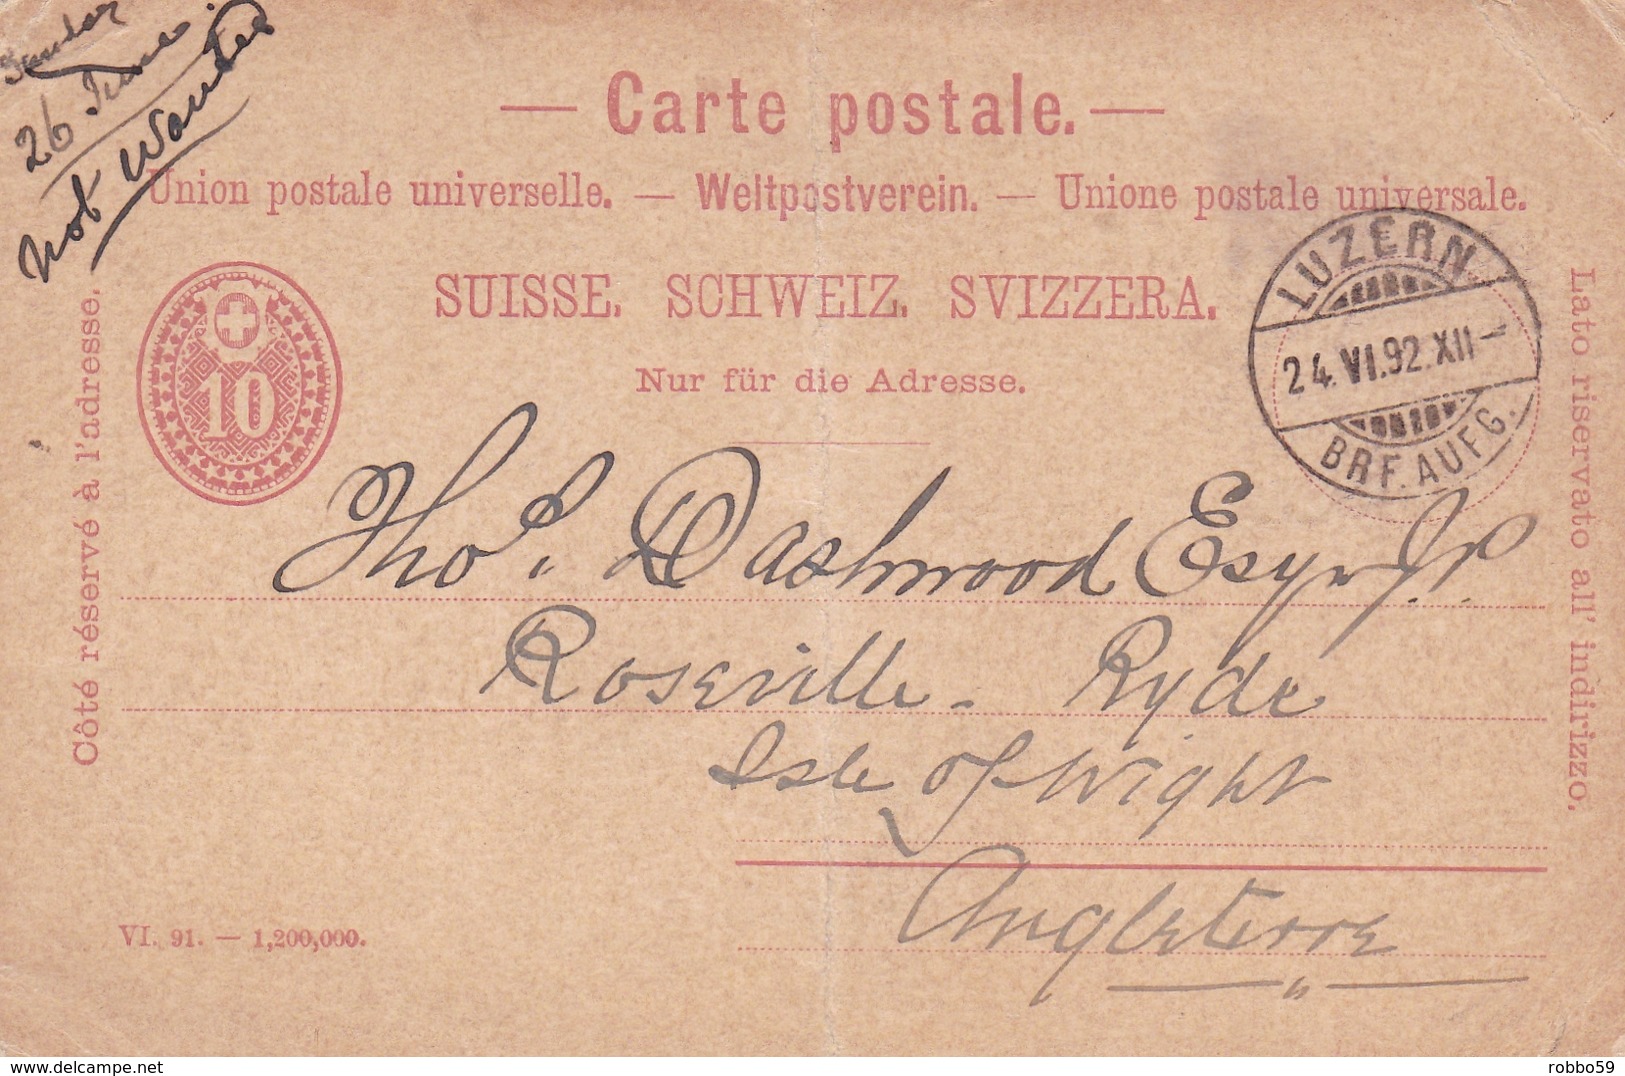 Sunday
26 June.
Not Wanted
— Carte postale. —
Union postale universelle. — Weltpostverein. — Unione postale universale.
SUISSE. SCHWEIZ. SVIZZERA.
Nur für die Adresse.
Côté réservé à l'adresse.
10
LUZERN
24.VI.92.XII—
BRF. AUFG.
Lato riservato all' indirizzo.
Thos. Dashwood Esqre J.P.
Roseville - Ryde
Isle of Wight
Angleterre
VI. 91. — 1,200,000.
robbo59